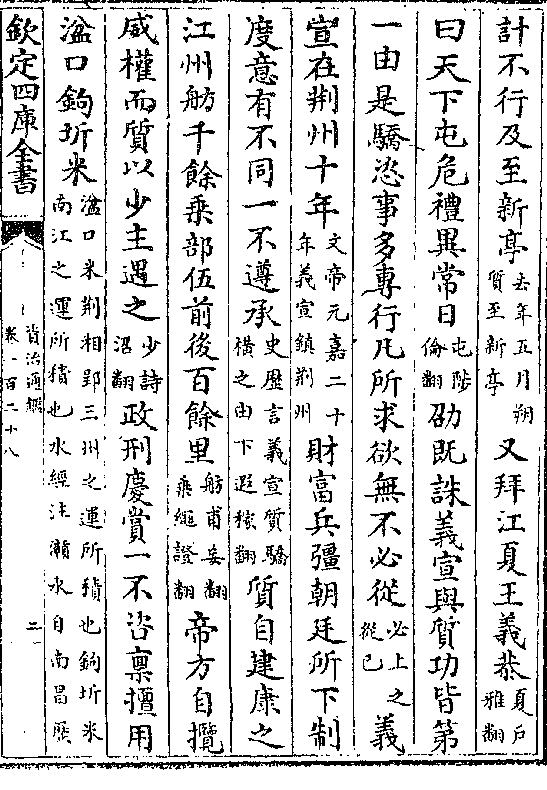 計不行及至新亭去年五月朔質至新亭又拜江夏王義恭夏戸雅翻
曰天下屯危禮異常日屯陟倫翻劭既誅義宣與質功皆第
一由是驕恣事多專行凡所求欲無不必從必上之從已義
宣在荆州十年文帝元嘉二十年義宣鎮荆州財富兵彊朝廷所下制
度意有不同一不遵承史歷言義宣質驕横之由下遐稼翻質自建康之
江州舫千餘乘部伍前後百餘里舫甫妄翻乘繩證翻帝方自攬
威權而質以少主遇之少詩沼翻政刑慶賞一不咨禀擅用
湓口鉤圻米湓口米荆湘郢三州之運所積也鉤圻米南江之運所積也水經注灨水自南昌歴
欽定四庫全書
資治通鑑
卷一百二十八
二